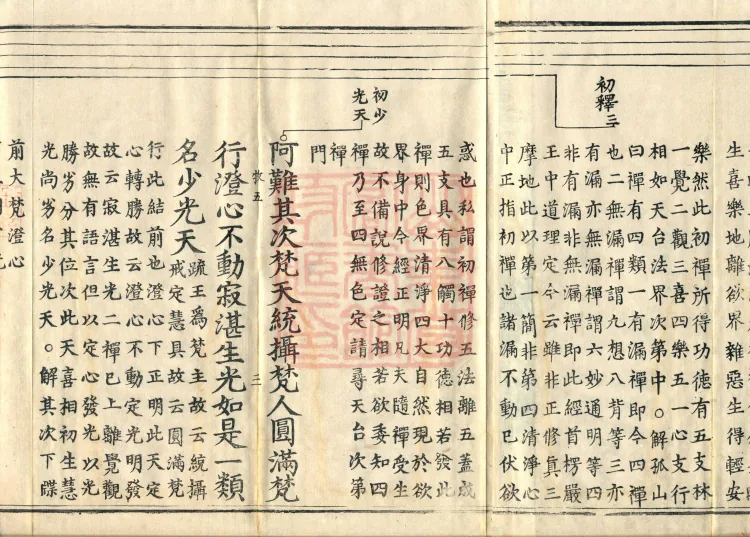 生喜樂地離欲界雜惡生得輕安
樂然此初禪所得功德有五支林
一覺二觀三喜四樂五一心支行
相如天台法界次第中。解孤山
曰禪有四類一有漏禪即令四禪
也二無漏禪謂九想八背等三亦
有漏亦無漏禪謂六妙通明等四
非有漏非無漏禪即此經首楞嚴
王中道理定今云雖非正修真三
摩地此以第一簡非第四清淨心
中正指初禪也諸漏不動已伏欲
初釋三
惑也私謂初禪修五法離五蓋成
五支具有八觸十功德相若發此
禪則色界清淨四大自然現於欲
界身中今經正明凡夫隨禪受生
故不備說修證之相若欲委知四
禪乃至四無色定請尋天台次第
禪
門
初少
光天
阿難其次梵天統攝梵人圓滿梵
牧五
三
行澄心不動寂湛生光如是一類
名少光天
疏王為梵主故云統攝
戒定慧具故云圓滿梵
行此結前也澄心下正明此天定
心轉勝故云澄心不動定光明發
故云寂湛生光二禪已上離覺觀
故無有語言但以定心發光以光
勝劣分其位次此天喜相初生慧
光尚劣名少光天。解其次下牒
前大梵澄心